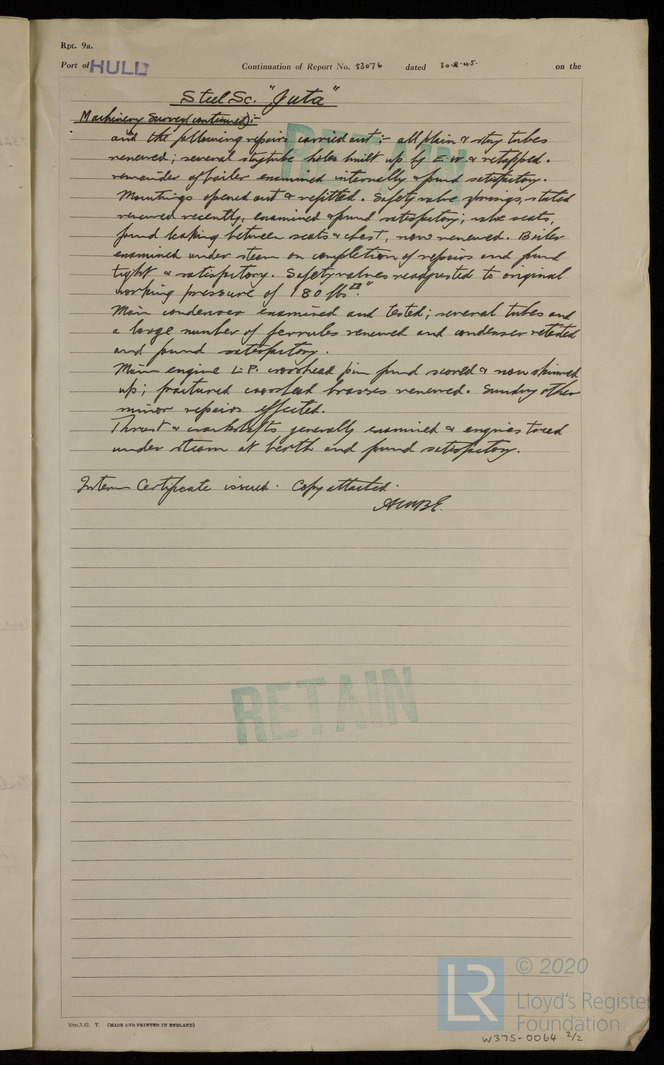 Rpt. 9a.
Port of HULL Continuation of Report No. 53076 dated 30-8-45. on the
Steel Sc. "Juta"
Machinery Survey (continued):-
and the following repairs carried out :- all plain & stay tubes
renewed; several staytube holes built up by E.W. & retapped.
remainder of boiler examined internally & found satisfactory.
Mountings opened out & refitted. Safety valve springs, stated
renewed recently, examined & found satisfactory; valve seats,
found leaking between seats & chest, now renewed. Boiler
examined under steam on completion of repairs and found
tight & satisfactory. Safety valves readjusted to original
working pressure of 180 lbs □".
Main condenser examined and tested; several tubes and
a large number of ferrules renewed and condenser retested
and found satisfactory.
Main engine L.P. crosshead pin found scored & now skimmed
up; fractured crosshead brasses renewed. Sundry other
minor repairs effected.
Thrust & crankshafts generally examined & engines tried
under steam at berth and found satisfactory.
Interim Certificate issued. Copy attached.
RETAIN
RETAIN
(MADE AND PRINTED IN ENGLAND)
LR
© 2020
Lloyd's Register
Foundation
W375-0064 2/2